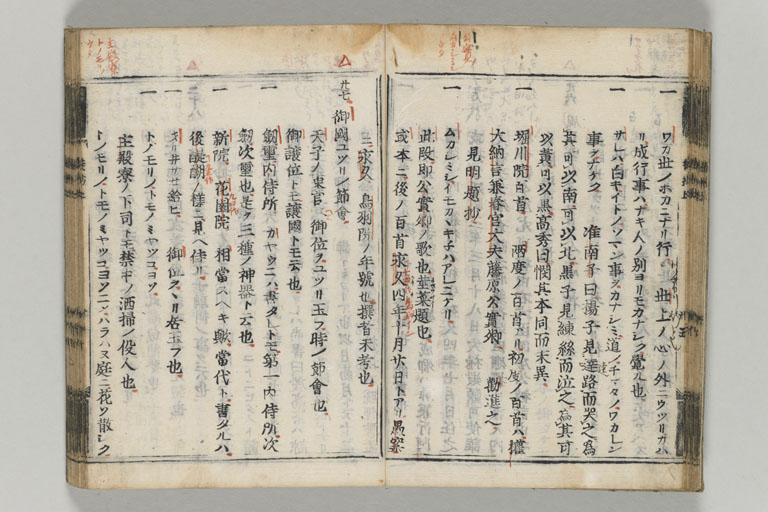 一 ワカ世ノホカニナリ行 世上ノ心ノ外ニウツリカハ
リ成行事ハナキ人ノ別ヨリモカナシク覚ル也
一 サレハ白キイトノソマン事ヲカナシミ道ノチマタノワカレン
事ヲナケク 淮南子曰揚子見逵路而哭之為
其可以南可以北墨子見練絲而泣之為其可
以黄可以黒高秀曰憫其本同而末異
一 堀川院百首 両度ノ百首アル初度ノ百首ハ権
大納言兼春宮大夫藤原公實卿勧進之
見明題抄
一 ムカシミシイモカカキチハアレニケリ
此段即公實卿ノ歌也菫菜題也
或本ニ後ノ百首永久四年十二月廿日トアリ愚案
ニ永久 鳥羽院ノ年號也撰者未考也
廿七 御國ユツリノ節會
天子ノ東宮ヘ御位ヲユツリ玉フ時ノ節會也
御譲位トモ譲國トモ云也
一 劔璽内侍所 カヤウニハ書タレトモ第一内侍所次
劔次璽也是ヲ三種ノ神器ト云也
一 新院 花園院ニ相當スヘキ歟當代ト書タルハ
後醍醐ノ様ニ見ヘ侍リ
一 オリ井サセ給ヒ 御位ヲスヘリ玉フ也
一 トノモリノトモノミヤツコヨソ
主殿寮ノ下司トモ禁中ノ洒掃ノ役人也
トノモリノトモノミヤツコヨソニシテハラハヌ庭ニ花ソ散シク